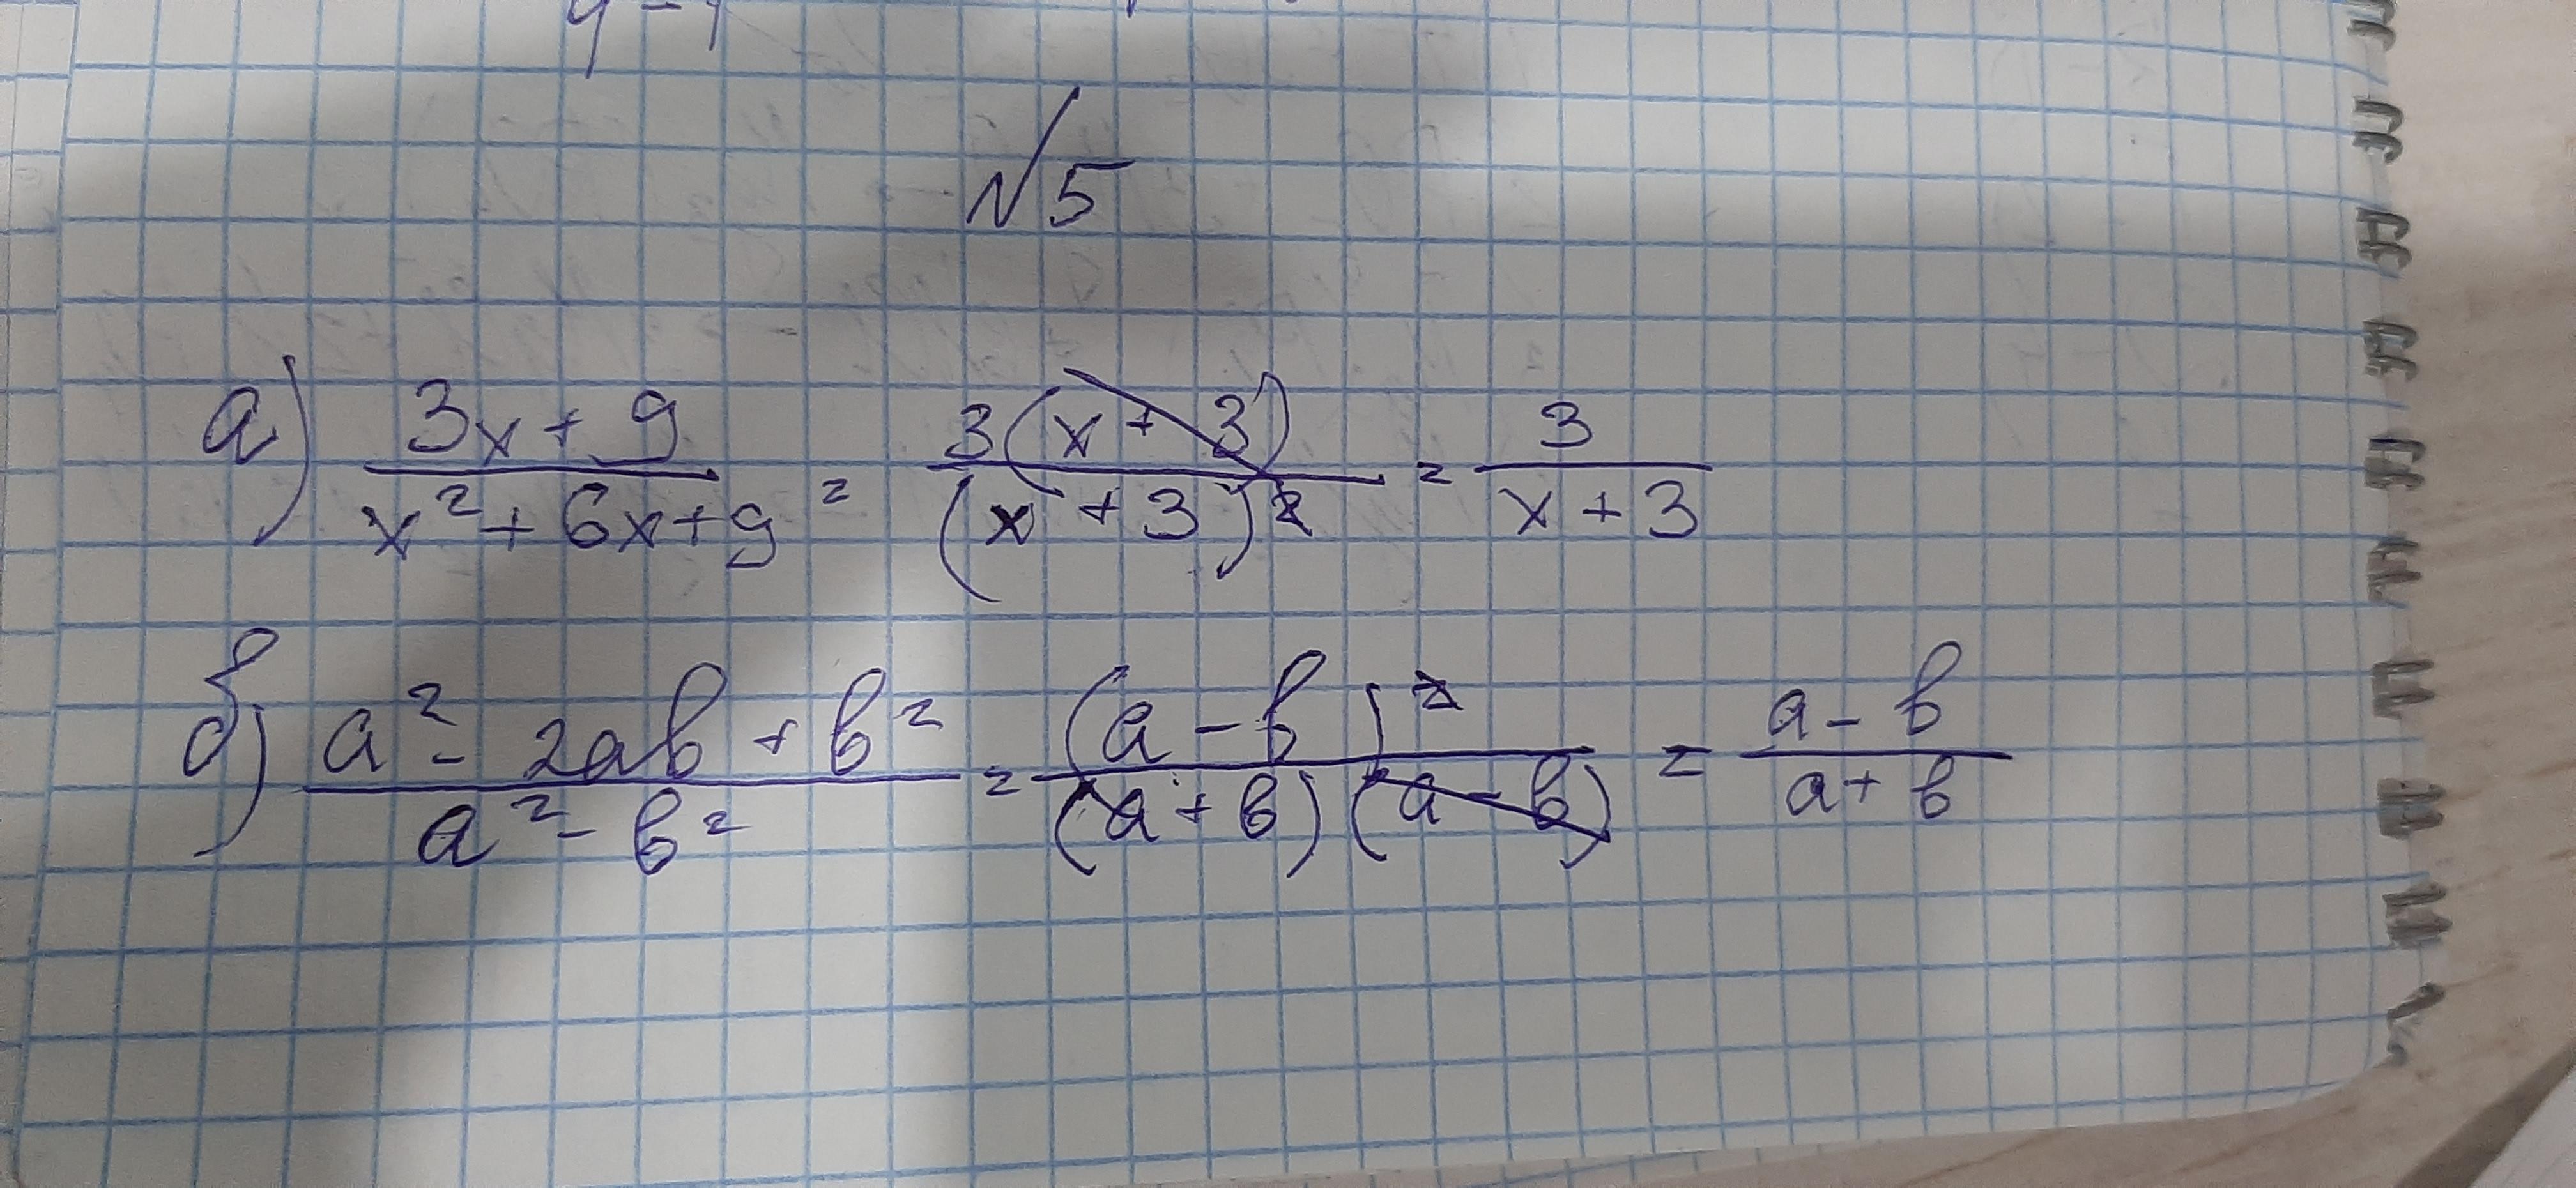 №5
а) (3x + 9)/(x² + 6x + 9) = 3(x + 3)/(x + 3)² = 3/(x + 3)
б) (a² - 2ab + b²)/(a² - b²) = (a - b)²/((a + b)(a - b)) = (a - b)/(a + b)